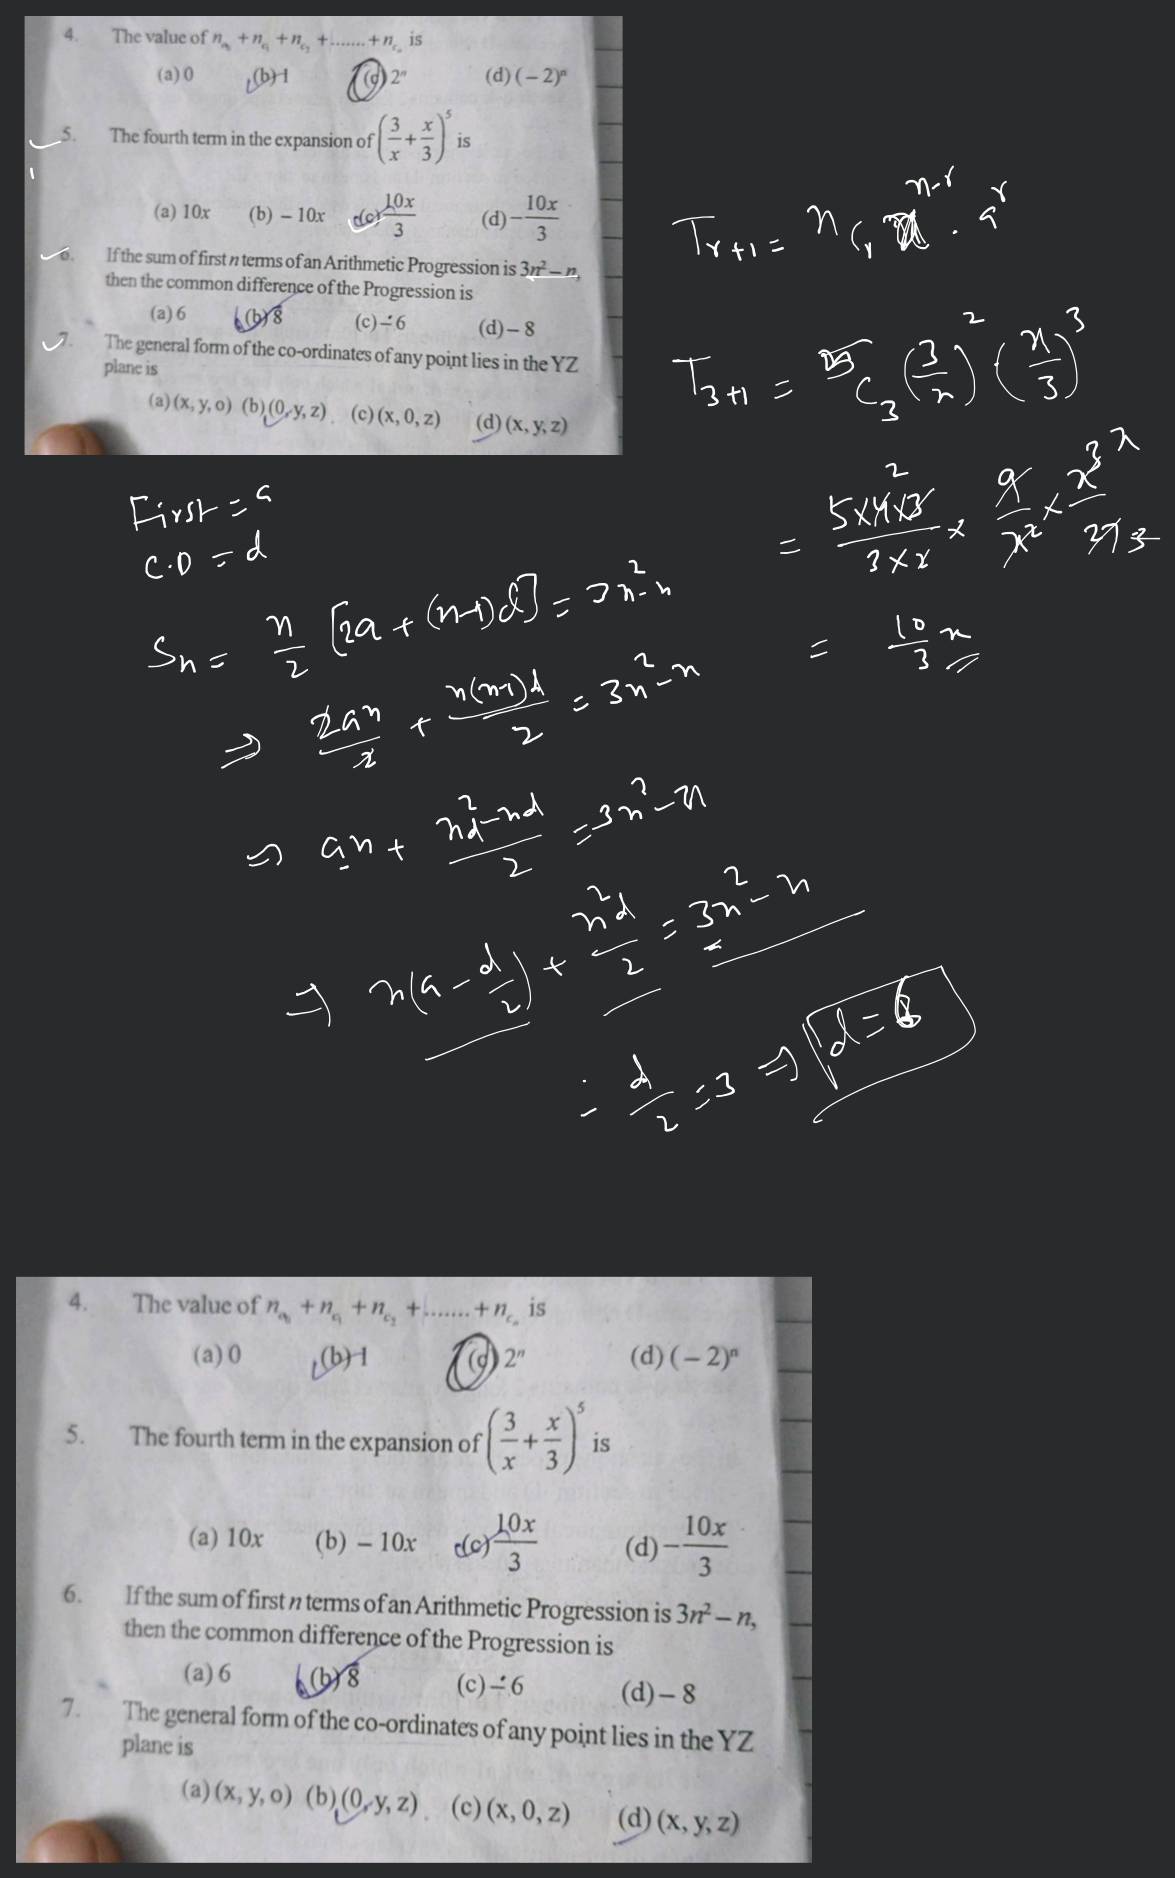 4. The value of n_c₀ + n_c₁ + n_c₂ + ....... + n_cₙ is
(a) 0 (b) -1 (c) 2ⁿ (d) (– 2)ⁿ
5. The fourth term in the expansion of (3/x + x/3)⁵ is
(a) 10x (b) – 10x (c) 10x/3 (d) – 10x/3
6. If the sum of first n terms of an Arithmetic Progression is 3n² – n,
then the common difference of the Progression is
(a) 6 (b) 8 (c) – 6 (d) – 8
7. The general form of the co-ordinates of any point lies in the YZ
plane is
(a) (x, y, o) (b) (0, y, z) (c) (x, 0, z) (d) (x, y, z)
T_{r+1} = n_{C_r} x^{n-r} . a^r
T_{3+1} = 5_{C_3} (3/x)² (x/3)³
= 5×4×3/3×2 × 9/x² × x³/27
= 10/3 x
First = a
C.D = d
Sn = n/2 [2a + (n-1)d] = 3n² - n
⇒ 2an/2 + n(n-1)d/2 = 3n² - n
⇒ an + n²d - nd/2 = 3n² - n
⇒ n(a - d/2) + n²d/2 = 3n² - n
∴ d/2 = 3 ⇒ d = 6
4. The value of n_c₀ + n_c₁ + n_c₂ + ....... + n_cₙ is
(a) 0 (b) -1 (c) 2ⁿ (d) (– 2)ⁿ
5. The fourth term in the expansion of (3/x + x/3)⁵ is
(a) 10x (b) – 10x (c) 10x/3 (d) – 10x/3
6. If the sum of first n terms of an Arithmetic Progression is 3n² – n,
then the common difference of the Progression is
(a) 6 (b) 8 (c) – 6 (d) – 8
7. The general form of the co-ordinates of any point lies in the YZ
plane is
(a) (x, y, o) (b) (0, y, z) (c) (x, 0, z) (d) (x, y, z)